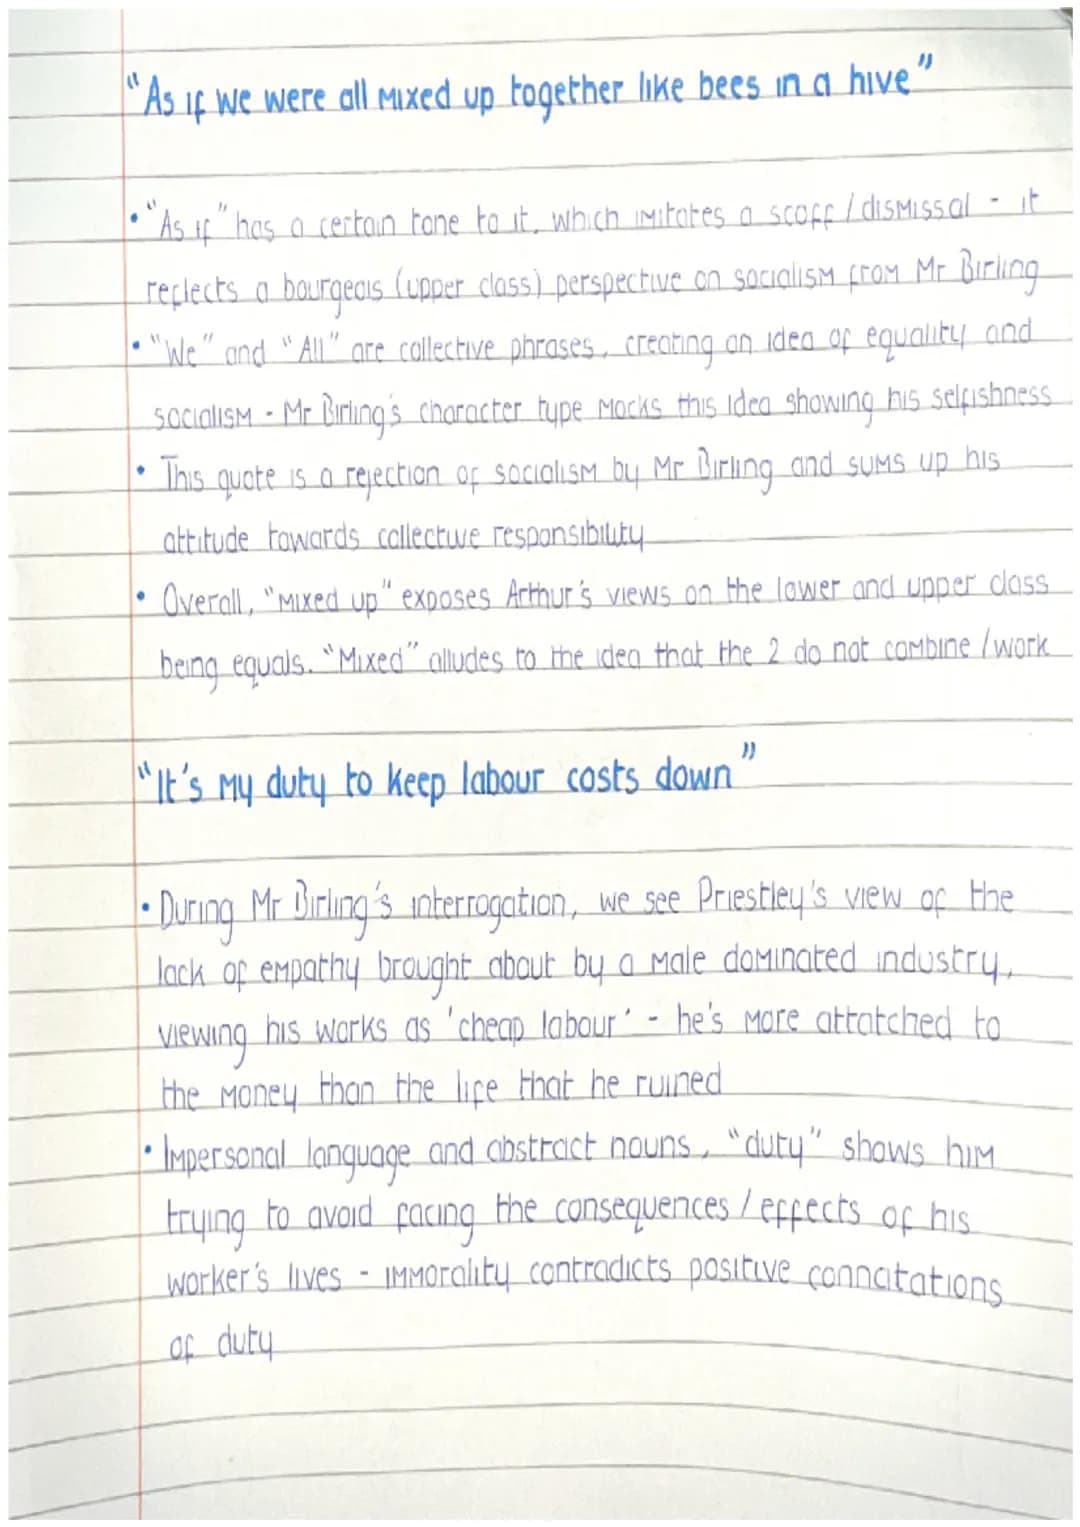 "As if we were all mixed up together like bees in a hive"
• "As if" has a certain tone to it, which imitates a scoff / dismissal - it
reflects a bourgeois (upper class) perspective on socialism from Mr Birling
• "We" and "All" are collective phrases, creating an idea of equality and
socialism - Mr Birling's character type mocks this idea showing his selfishness
• This quote is a rejection of socialism by Mr Birling and sums up his
attitude towards collective responsibility
• Overall, "Mixed up" exposes Arthur's views on the lower and upper class
being equals. "Mixed" alludes to the idea that the 2 do not combine / work
"It's my duty to keep labour costs down"
• During Mr Birling's interrogation, we see Priestley's view of the
lack of empathy brought about by a male dominated industry,
viewing his works as 'cheap labour' - he's more attatched to
the money than the life that he ruined
• Impersonal language and abstract nouns, "duty" shows him
trying to avoid facing the consequences / effects of his
worker's lives - immorality contradicts positive connatations
of duty